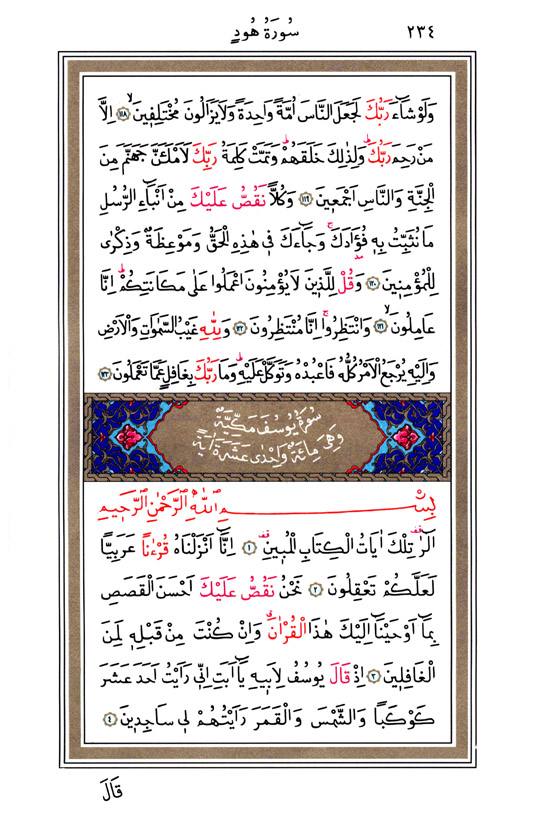 سُورَةُ هُودٍ ٢٣٤
وَلَوْ شَٓاءَ رَبُّكَ لَجَعَلَ النَّاسَ اُمَّةً وَاحِدَةً وَلَا يَزَالُونَ مُخْتَلِف۪ينَۙ ١١٨ اِلَّا
مَنْ رَحِمَ رَبُّكَۜ وَلِذٰلِكَ خَلَقَهُمْۜ وَتَمَّتْ كَلِمَةُ رَبِّكَ لَاَمْلَـَٔنَّ جَهَنَّمَ مِنَ
الْجِنَّةِ وَالنَّاسِ اَجْمَع۪ينَ ١١٩ وَكُلًّا نَقُصُّ عَلَيْكَ مِنْ اَنْبَٓاءِ الرُّسُلِ
مَا نُثَبِّتُ بِه۪ فُؤٰادَكَۚ وَجَٓاءَكَ ف۪ي هٰذِهِ الْحَقُّ وَمَوْعِظَةٌ وَذِكْرٰى
لِلْمُؤْمِن۪ينَ ١٢٠ وَقُلْ لِلَّذ۪ينَ لَا يُؤْمِنُونَ اعْمَلُوا عَلٰى مَكَانَتِكُمْۜ اِنَّا
عَامِلُونَۙ ١٢١ وَانْتَظِرُواۚ اِنَّا مُنْتَظِرُونَ ١٢٢ وَلِلّٰهِ غَيْبُ السَّمٰوَاتِ وَالْاَرْضِ
وَاِلَيْهِ يُرْجَعُ الْاَمْرُ كُلُّهُ فَاعْبُدْهُ وَتَوَكَّلْ عَلَيْهِۜ وَمَا رَبُّكَ بِغَافِلٍ عَمَّا تَعْمَلُونَ ١٢٣
سُورَةُ يُوسُفَ مَكِّيَّةٌ
وَهِيَ مِائَةٌ وَاِحْدٰى عَشَرَةَ اٰيَةً
بِسْمِ اللّٰهِ الرَّحْمٰنِ الرَّح۪يمِ
الٓرٰ۠ تِلْكَ اٰيَاتُ الْكِتَابِ الْمُب۪ينِ۠ ١ اِنَّٓا اَنْزَلْنَاهُ قُرْءٰناً عَرَبِيًّا
لَعَلَّكُمْ تَعْقِلُونَ ٢ نَحْنُ نَقُصُّ عَلَيْكَ اَحْسَنَ الْقَصَصِ
بِمَٓا اَوْحَيْنَٓا اِلَيْكَ هٰذَا الْقُرْاٰنَۗ وَاِنْ كُنْتَ مِنْ قَبْلِه۪ لَمِنَ
الْغَافِل۪ينَ ٣ اِذْ قَالَ يُوسُفُ لِاَب۪يهِ يَٓا اَبَتِ اِنّ۪ي رَاَيْتُ اَحَدَ عَشَرَ
كَوْكَباً وَالشَّمْسَ وَالْقَمَرَ رَاَيْتُهُمْ ل۪ي سَاجِد۪ينَ ٤
قَالَ